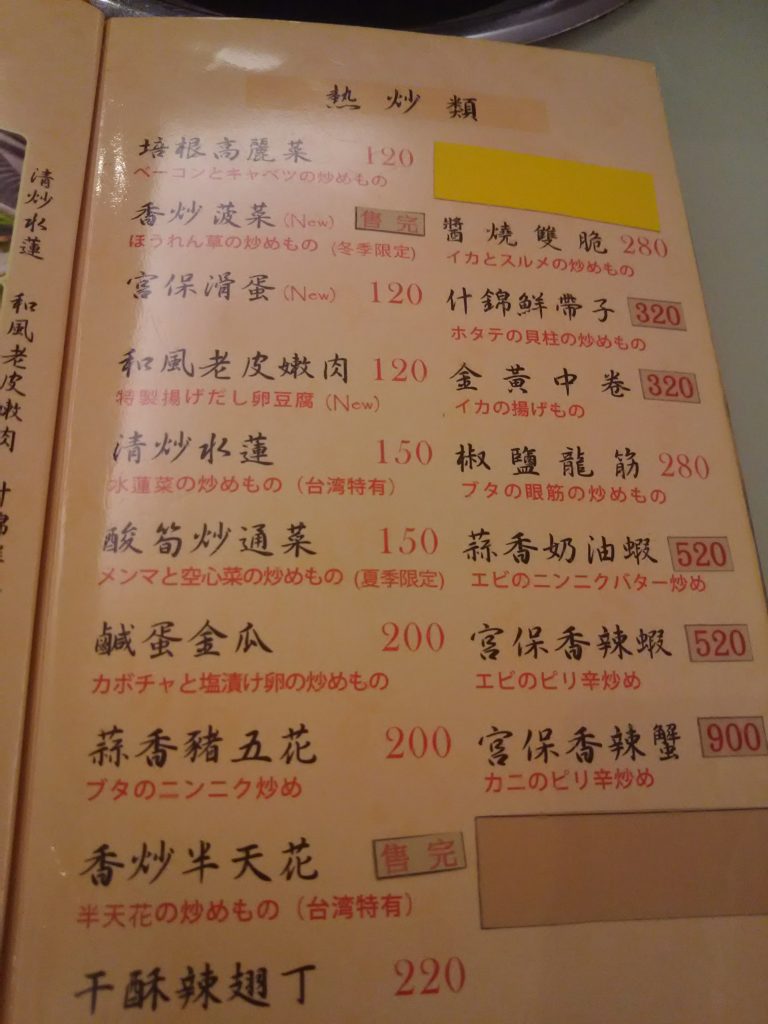 清炒水蓮
和風老皮嫩肉
熱炒類
培根高麗菜 120
ベーコンとキャベツの炒めもの
香炒菠菜(New) 售完
ほうれん草の炒めもの (冬季限定)
宮保滑蛋(New) 120
和風老皮嫩肉 120
特製揚げだし卵豆腐 (New)
清炒水蓮 150
水蓮菜の炒めもの (台湾特有)
酸筍炒通菜 150
メンマと空心菜の炒めもの (夏季限定)
鹹蛋金瓜 200
カボチャと塩漬け卵の炒めもの
蒜香豬五花 200
ブタのニンニク炒め
香炒半天花 售完
半天花の炒めもの (台湾特有)
干酥辣翅丁 220
醬燒雙脆 280
イカとスルメの炒めもの
什錦鮮帶子 320
ホタテの貝柱の炒めもの
金黃中卷 320
イカの揚げもの
椒鹽龍筋 280
ブタの眼筋の炒めもの
蒜香奶油蝦 520
エビのニンニクバター炒め
宮保香辣蝦 520
エビのピリ辛炒め
宮保香辣蟹 900
カニのピリ辛炒め